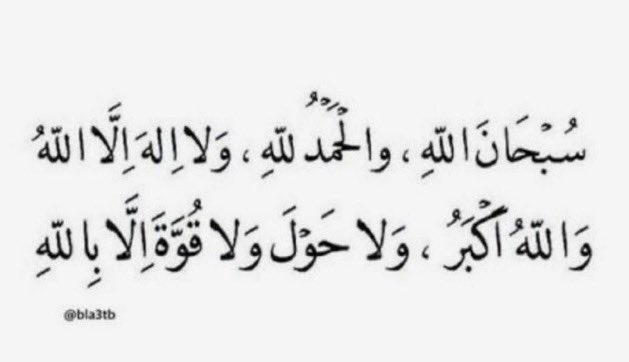 سُبْحَانَ اللّٰهِ ، والْحَمْدُ للّٰهِ ، وَلا اِلهَ اِلَّا اللّٰهُ
وَاللّٰهُ اَكْبَرُ ، وَلا حَوْلَ وَلا قُوَّةَ اِلَّا بِاللّٰهِ
@bla3tb